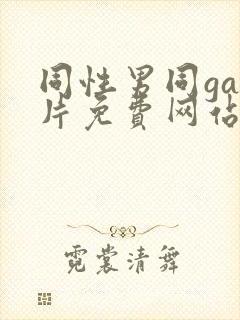 同性男同ga
片免费网佔
霓裳清舞